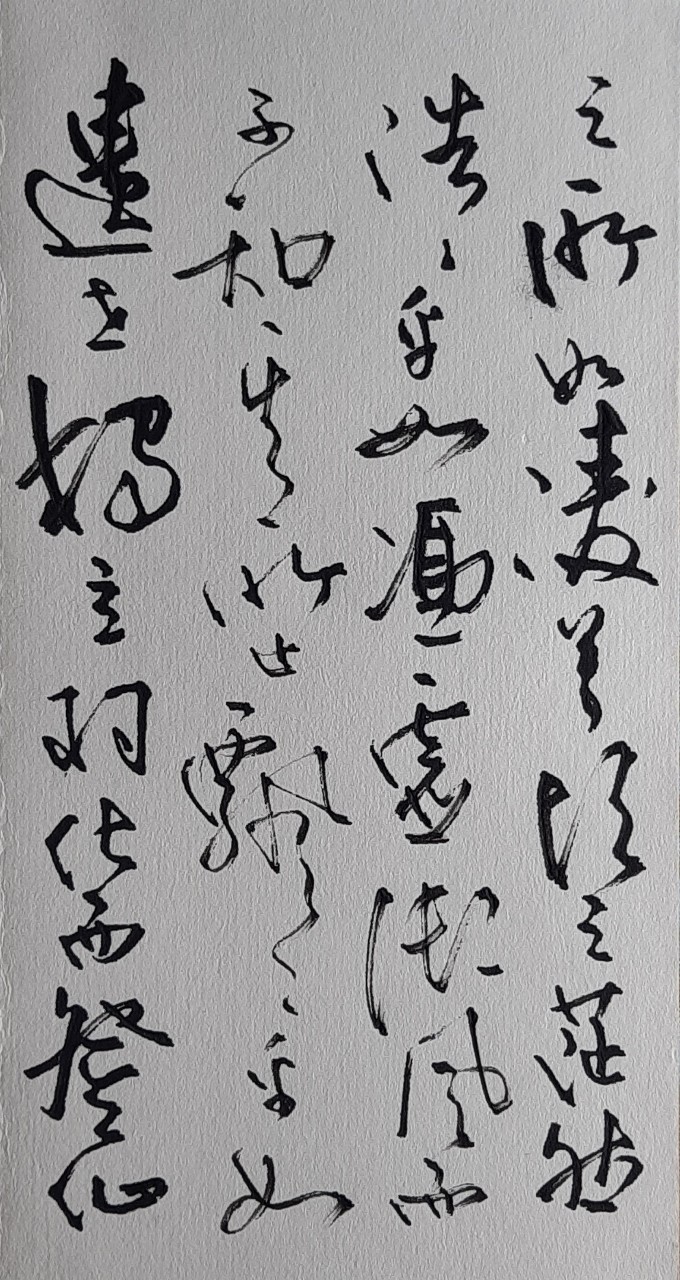 之所如凌萬頃之茫然
浩々乎如憑虛御風而
不知其所止飄々乎如
遺世獨立羽化而登仙